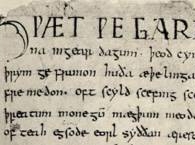 HǷÆT ǷE GAR
na ingear dagum. þeod cyn
þrym ge frunon huða æþelinga
fre medon. oft scyld scefing sce
þreatum monegū mægþum
of teah egsode eorl syððan